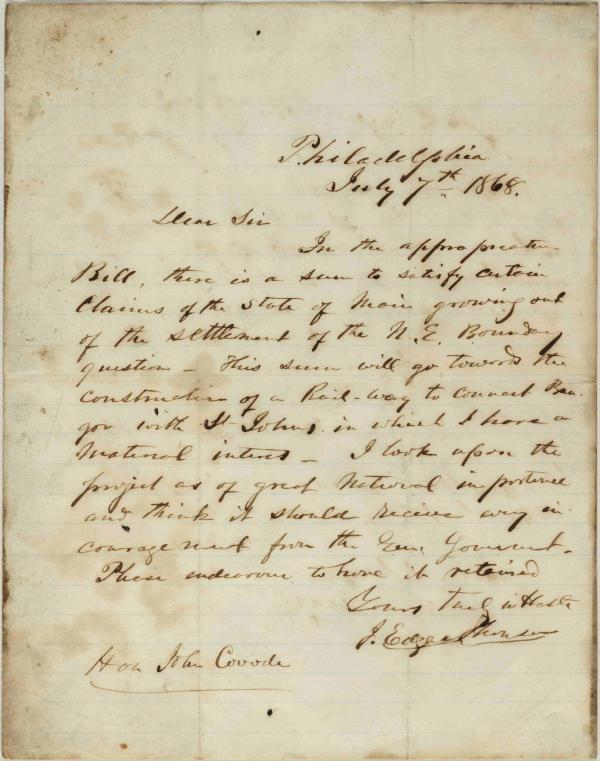 Philadelphia
July 7th 1868.
Dear Sir
In the appropriation
Bill, there is a sum to satisfy certain
Claims of the State of Main growing out
of the settlement of the N. E. Boundary
question - This sum will go towards the
construction of a Rail-way to connect Ban-
gor with St Johns, in which I have a
Material interest - I look upon the
project as of great National importance
and think it should receive every in-
couragement from the Gen. Government.
Please endeavour to have it retained
Yours Truly in Haste
J. Edgar Thomson
Hon John Covode